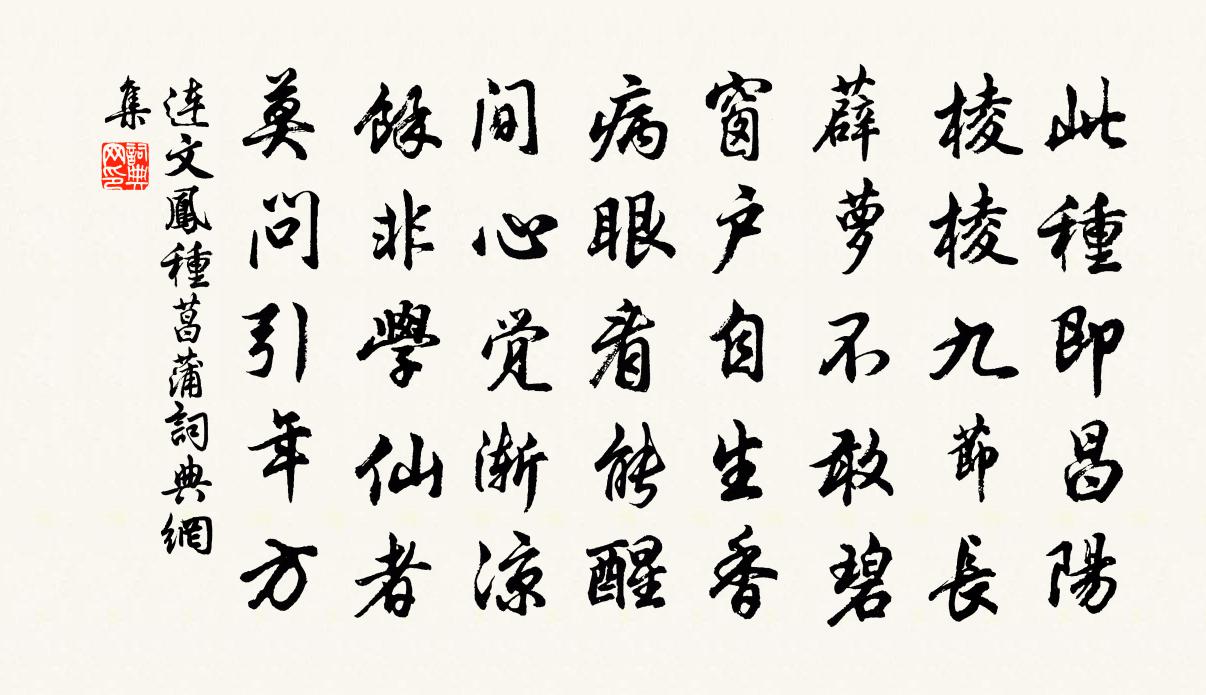 此種即昌陽
棱棱九節長
薜蘿不敢碧
窗户自生香
病眼看能醒
間心觉渐凉
餘非學仙者
莫問引年方
连文鳳種菖蒲詞典網
集
詞典
网印